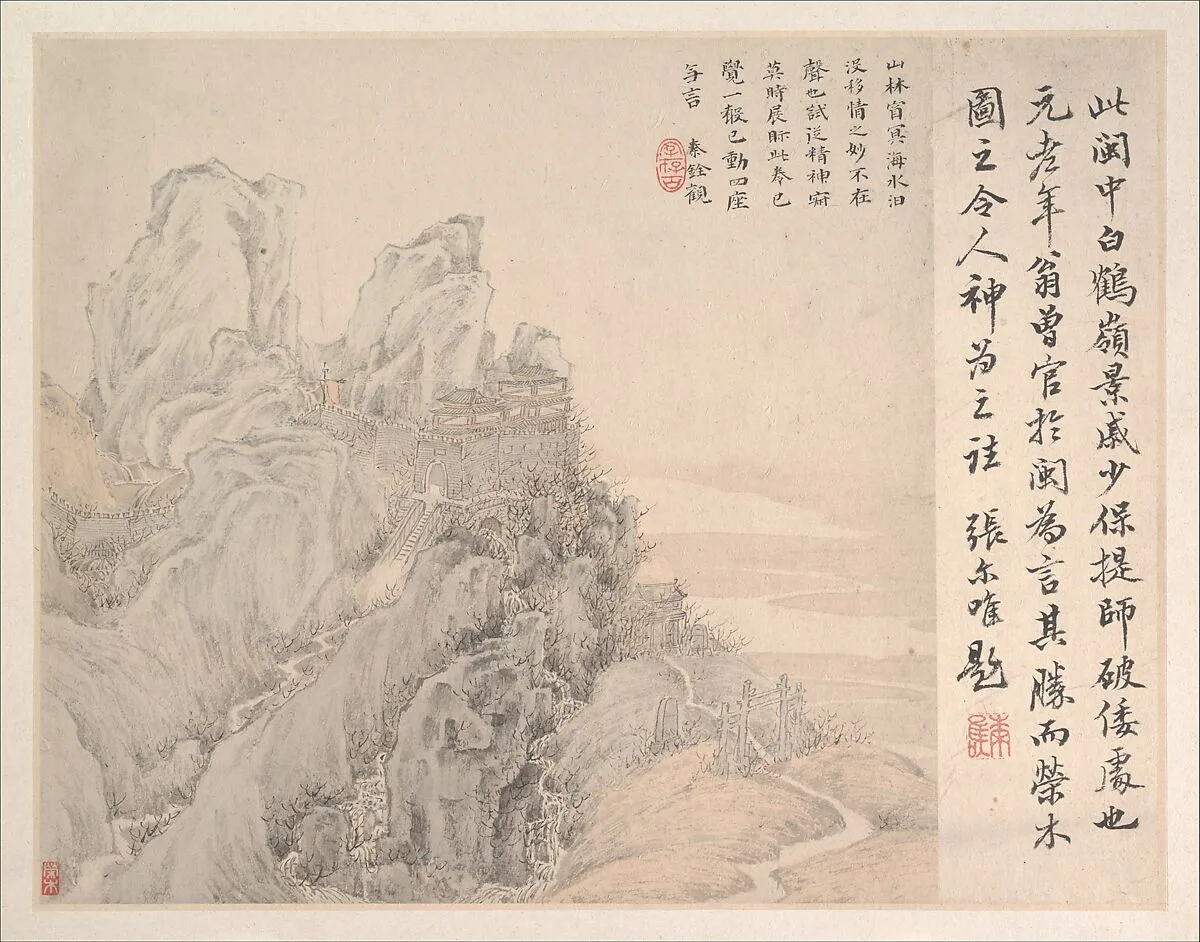 此閩中白鶴嶺景戚少保提師破倭處也
元老年翁曾官於閩為言其勝而榮木
圖之令人神為之註　張尔唯題
山林窅冥海水汩
没移情之妙不在
聲也試從精神寂
莫時展眎此巻已
覺一般已動四座
与言
秦銓觀
榮木